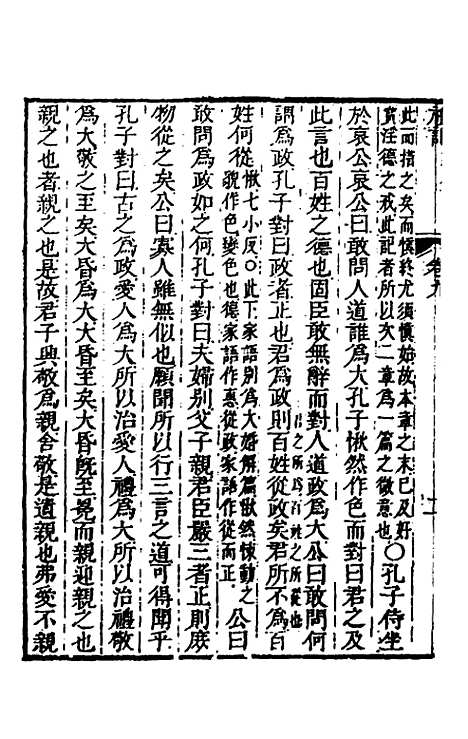 卷九
此而措之矣而慎終尤須慎始故本章之末已及好
實淫德之戒此記者所以次二章為一篇之微意也
○孔子侍坐
於哀公哀公曰敢問人道誰為大孔子愀然作色而對曰君之及
此言也百姓之德也固臣敢無辭而對人道政為大公曰敢問何
謂為政孔子對曰政者正也君為政則百姓從政矣君所不為百
君之所為百姓之所從也
姓何從
愀七小反○此下家語別為大婚解篇愀然悚動之
貌作色變色也德家語作惠從政家語作從而正
公曰
敢問為政如之何孔子對曰夫婦別父子親君臣嚴三者正則庶
物從之矣公曰寡人雖無似也願聞所以行三言之道可得聞乎
孔子對曰古之為政愛人為大所以治愛人禮為大所以治禮敬
為大敬之至矣大昏為大大昏至矣大昏既至冕而親迎親之也
親之也者親之也是故君子興敬為親舍敬是遺親也弗愛不親